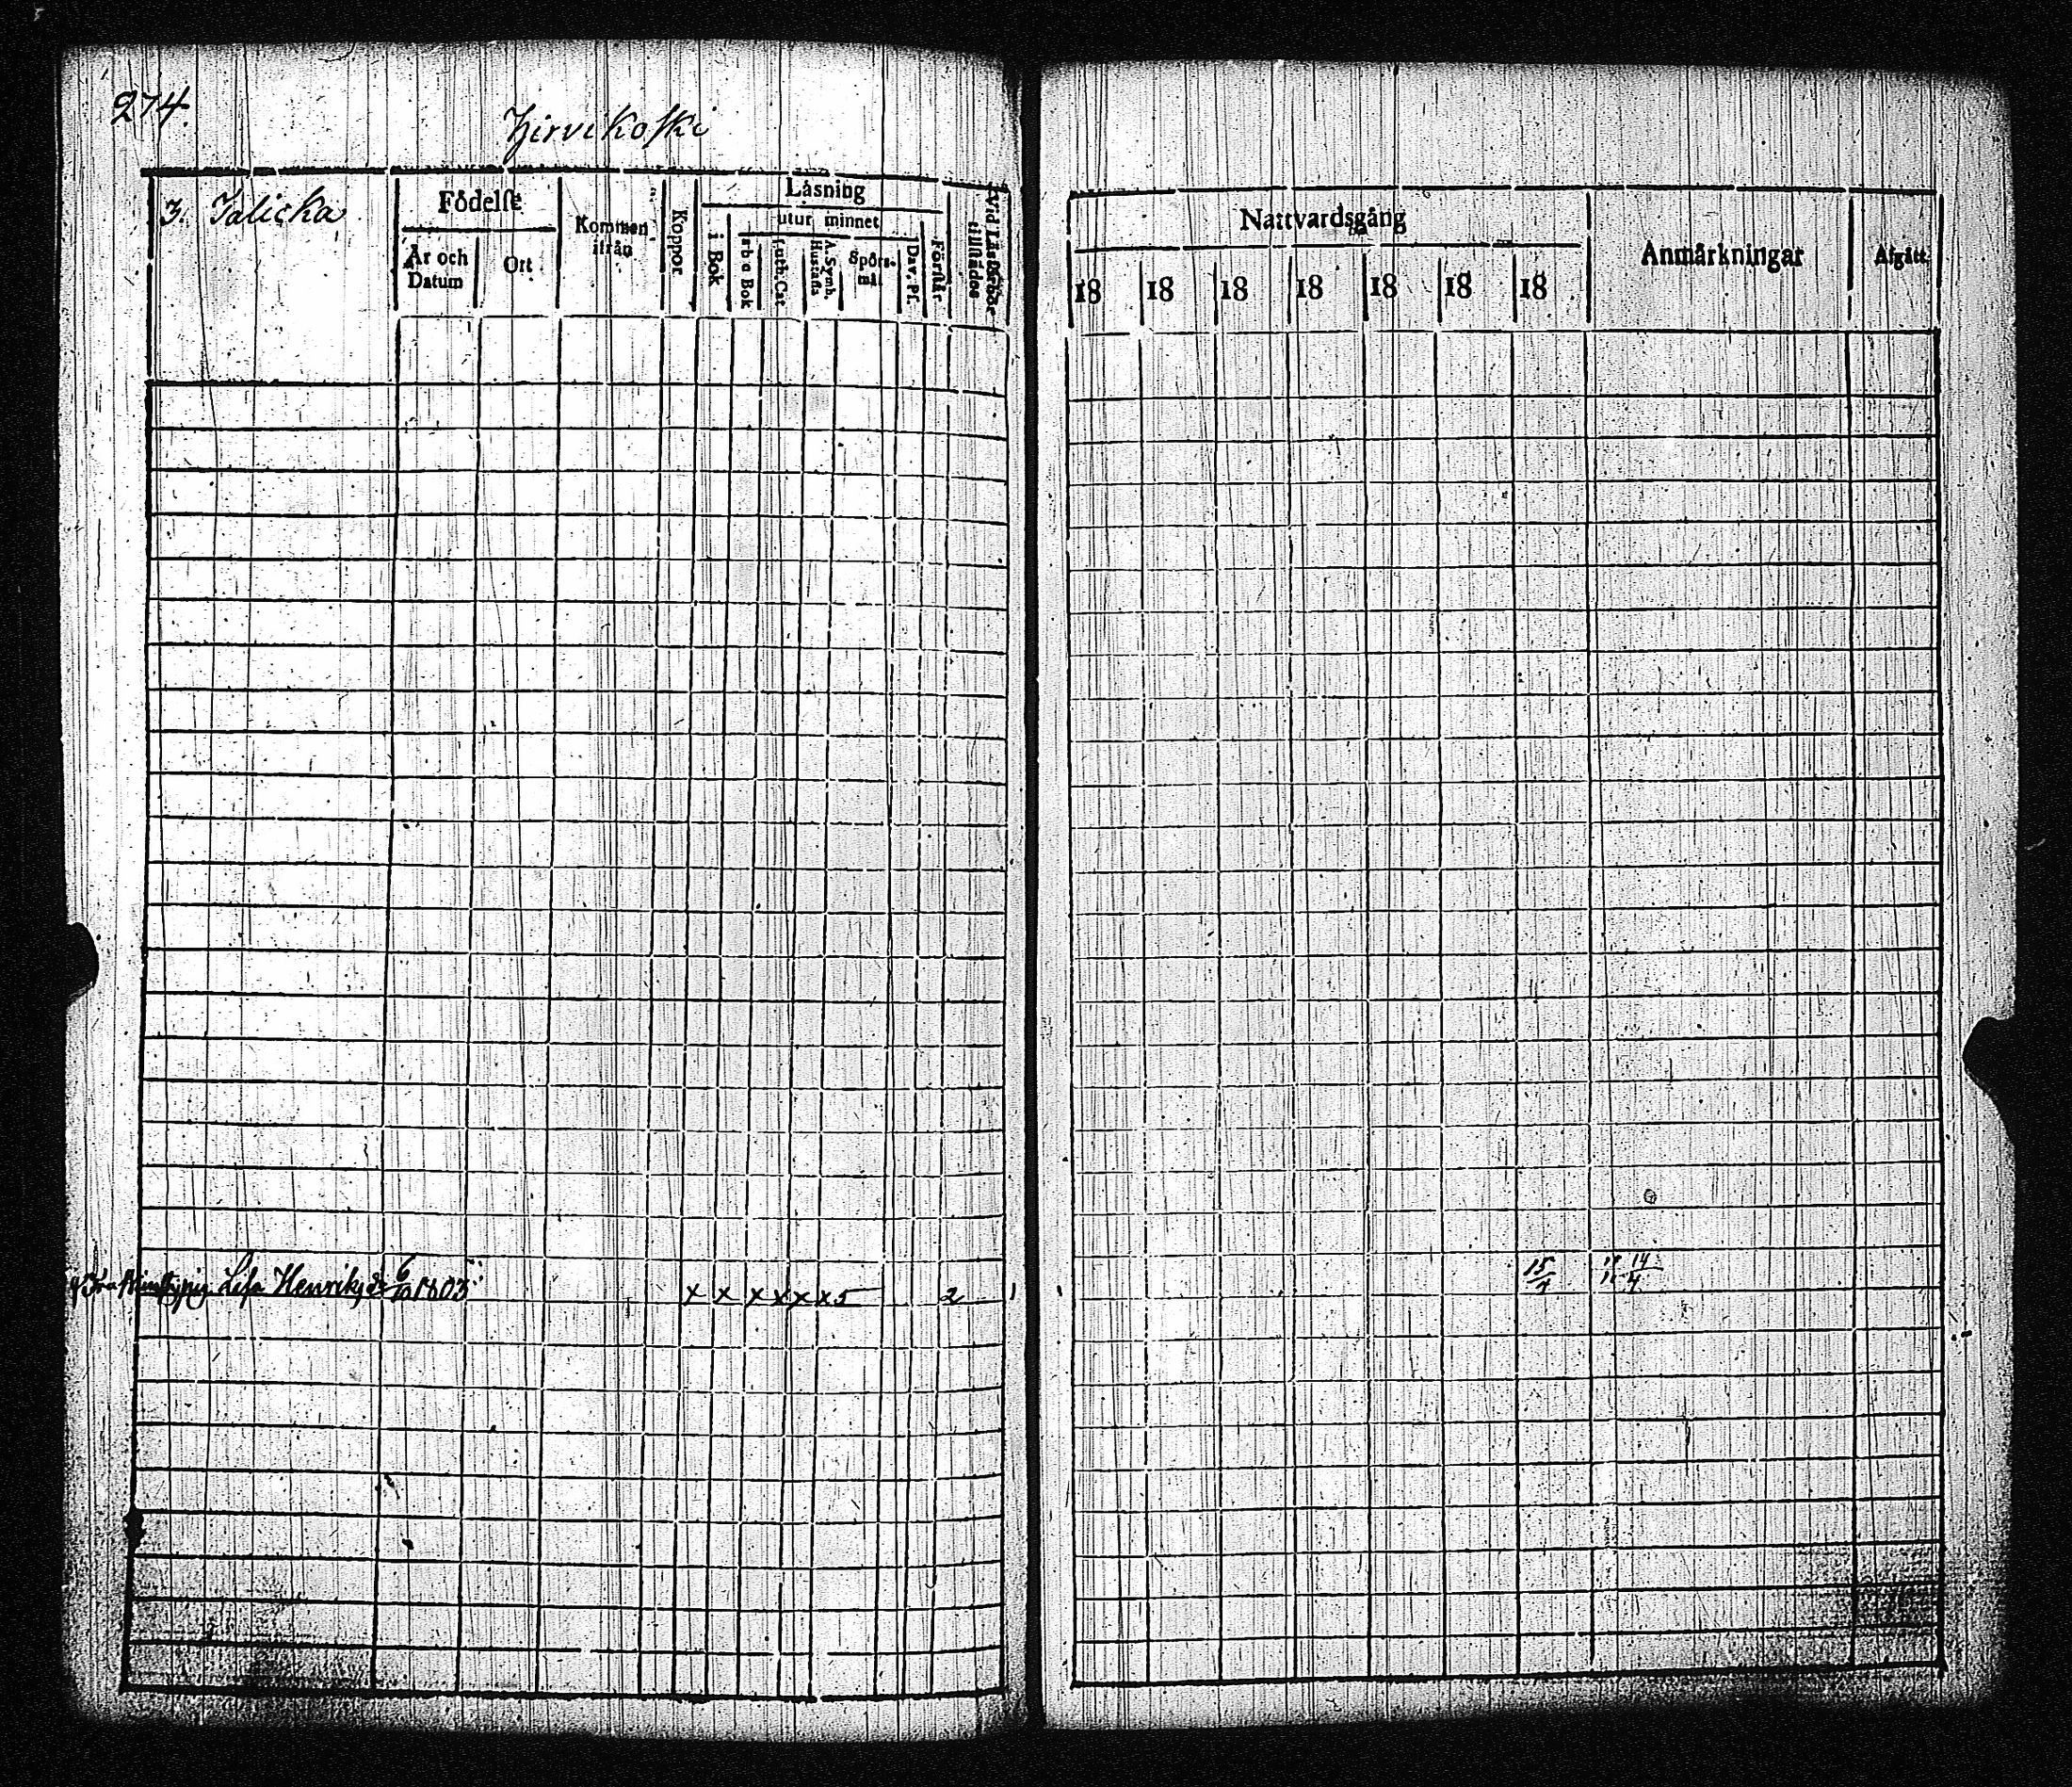 274.
Hirvikoski
3. Jalicka
Födelse
År och Datum
Ort
Kommen ifrån
Koppor
Läsning
i Bok
utur minnet
a b c Bok
Luth. Cat.
A. Symb. Hustafla
Spörs-mål
Dav. Ps.
Förstår
Vid Läsförhör tillstädes
Nattvardsgång
18 18 18 18 18 18 18
Anmärkningar
Afgått
Lisa Henriksdr 6/10 1803 x x x x x x 5 2 1
15/4 14/4